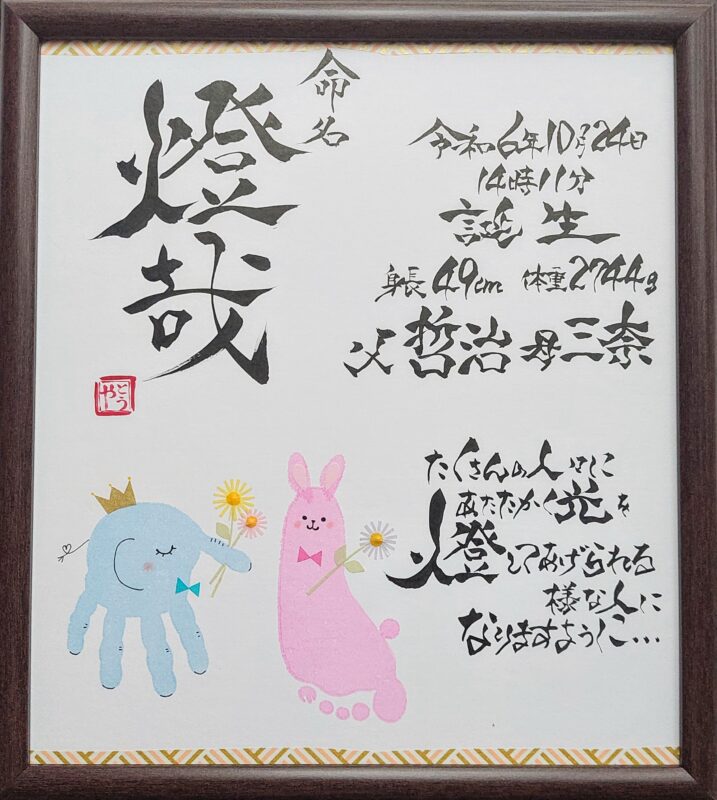 命名
燈哉
とうや
令和6年10月24日
14時11分
誕生
身長49cm 体重2744g
父哲治 母三奈
たくさんの人々に
あたたかく光を
燈してあげられる
様な人に
なりますように…